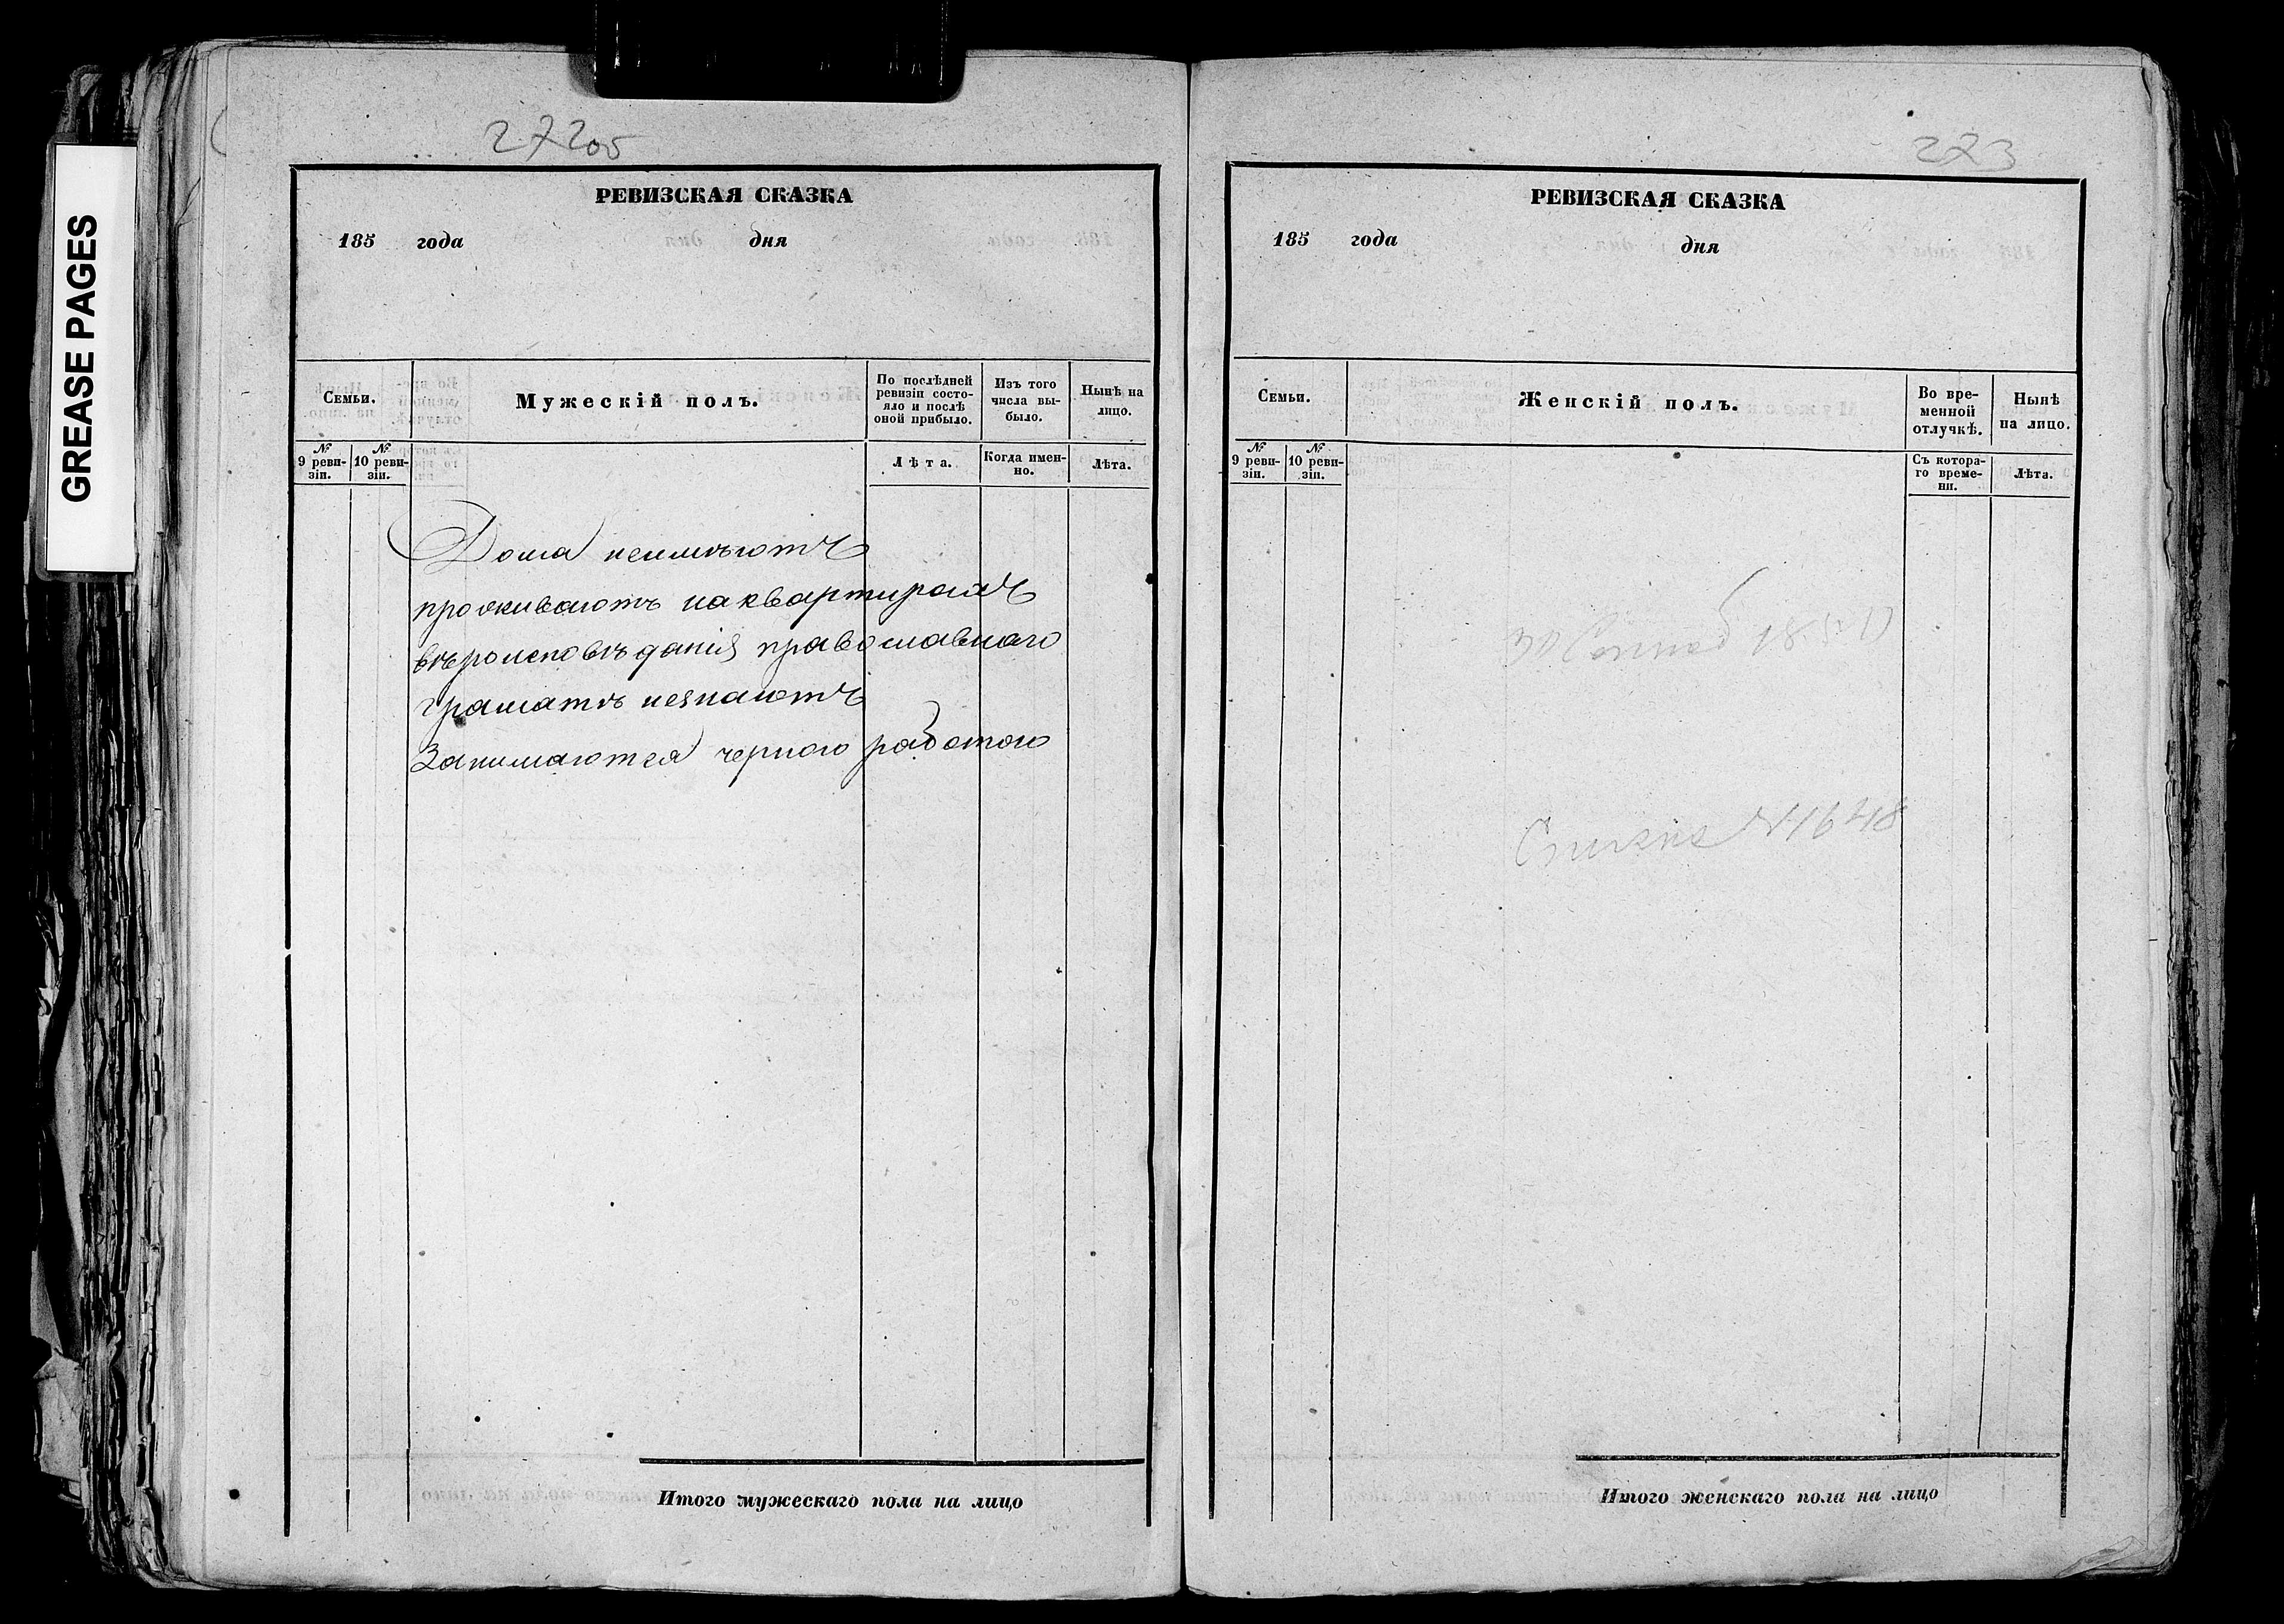 GREASE PAGES
272об
РЕВИЗСКАЯ СКАЗКА
185 года дня
Семьи.
Мужескій полъ.
По послѣдней ревизіи состо-
яло и послѣ оной прибыло.
Изъ того числа вы-
было.
Нынѣ на лицо.
№ 9 реви-
зіи.
№ 10 реви-
зіи.
Лѣта.
Когда имен-
но.
Лѣта.
Дома неимѣютъ
проживаютъ наквартирахъ
вѣроисповѣданія православнаго
граматѣ незнаютъ
Занимаются черною работою
Итого мужескаго пола на лицо
273
РЕВИЗСКАЯ СКАЗКА
185 года дня
Семьи.
Женскій полъ.
Во вре-
менной
отлучкѣ.
Нынѣ
на лицо.
№ 9 реви-
зіи.
№ 10 реви-
зіи.
Съ котора-
го време-
ни.
Лѣта.
№1648
Итого женскаго пола на лицо